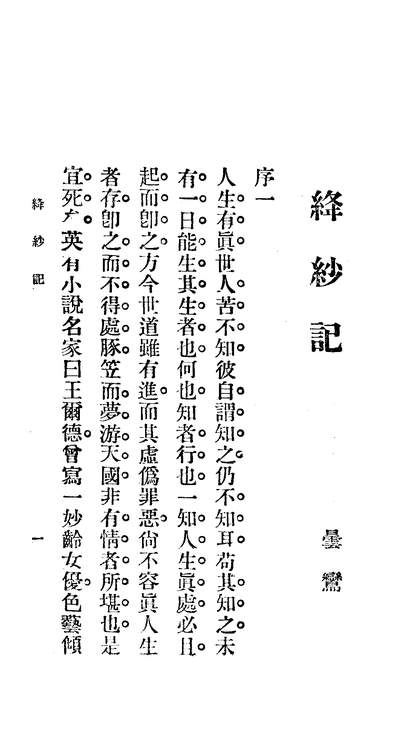 絳紗記
曇鸞
序一
人生有眞世人苦不知彼自謂知之仍不知耳苟其知之未
有一日能生其生者也何也知者行也一知人生眞處必且
起而卽之方今世道雖有進而其虛僞罪惡尙不容眞人生
者存卽之而不得處豚笠而夢游天國非有情者所堪也是
宜死矣英有小說名家曰王爾德曾寫一妙齡女優色藝傾
絳紗記
一